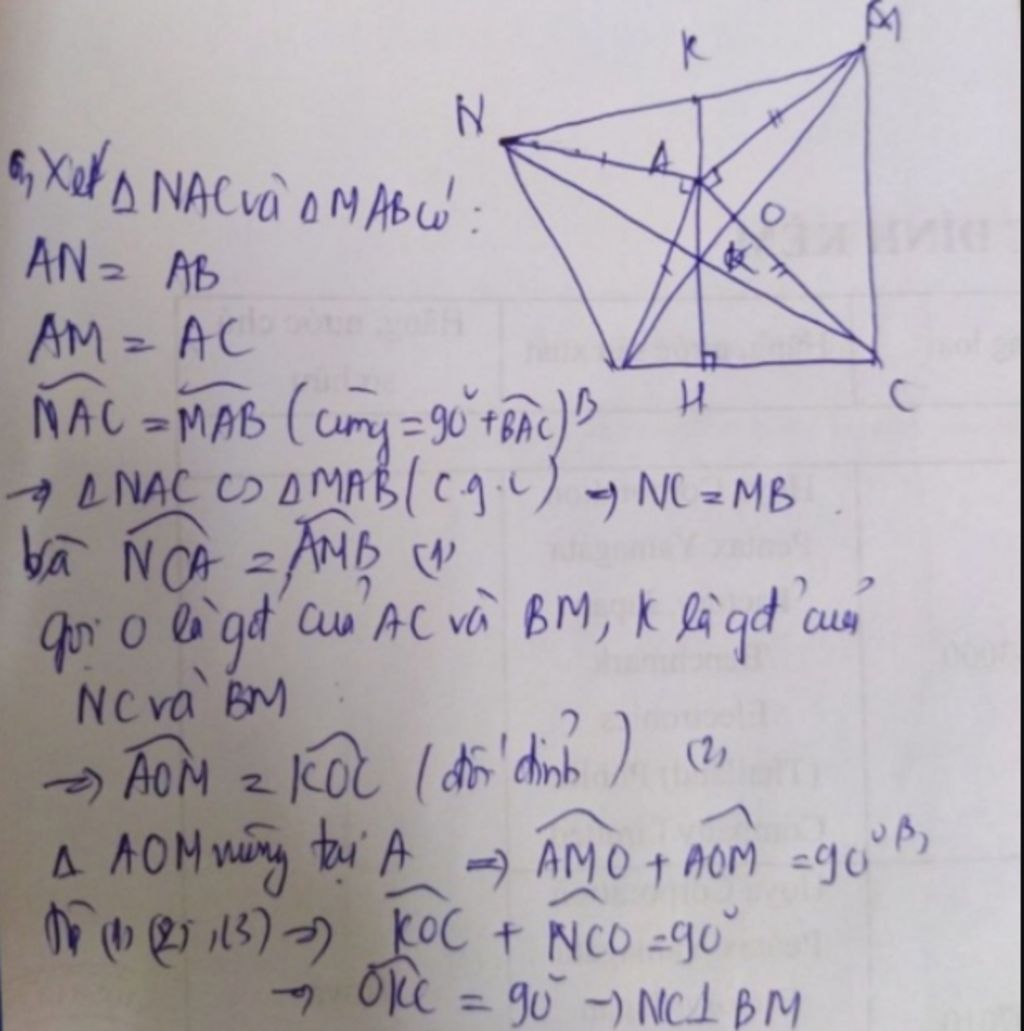 M
K
N
A
O
K
B
H
C
a, Xét Δ NAC và Δ MAB có :
AN = AB
AM = AC
NAC = MAB ( cùng = 90° + BAC )
→ Δ NAC = Δ MAB ( c.g.c ) → NC = MB
và NCA = AMB (1)
gọi O là gđ' của AC và BM, K là gđ' của
NC và BM
=> AOM = KOC ( đối đỉnh ) (2)
Δ AOM vuông tại A => AMO + AOM = 90° (3)
Từ (1) (2), (3) => KOC + NCO = 90°
→ OKC = 90° → NC⊥BM